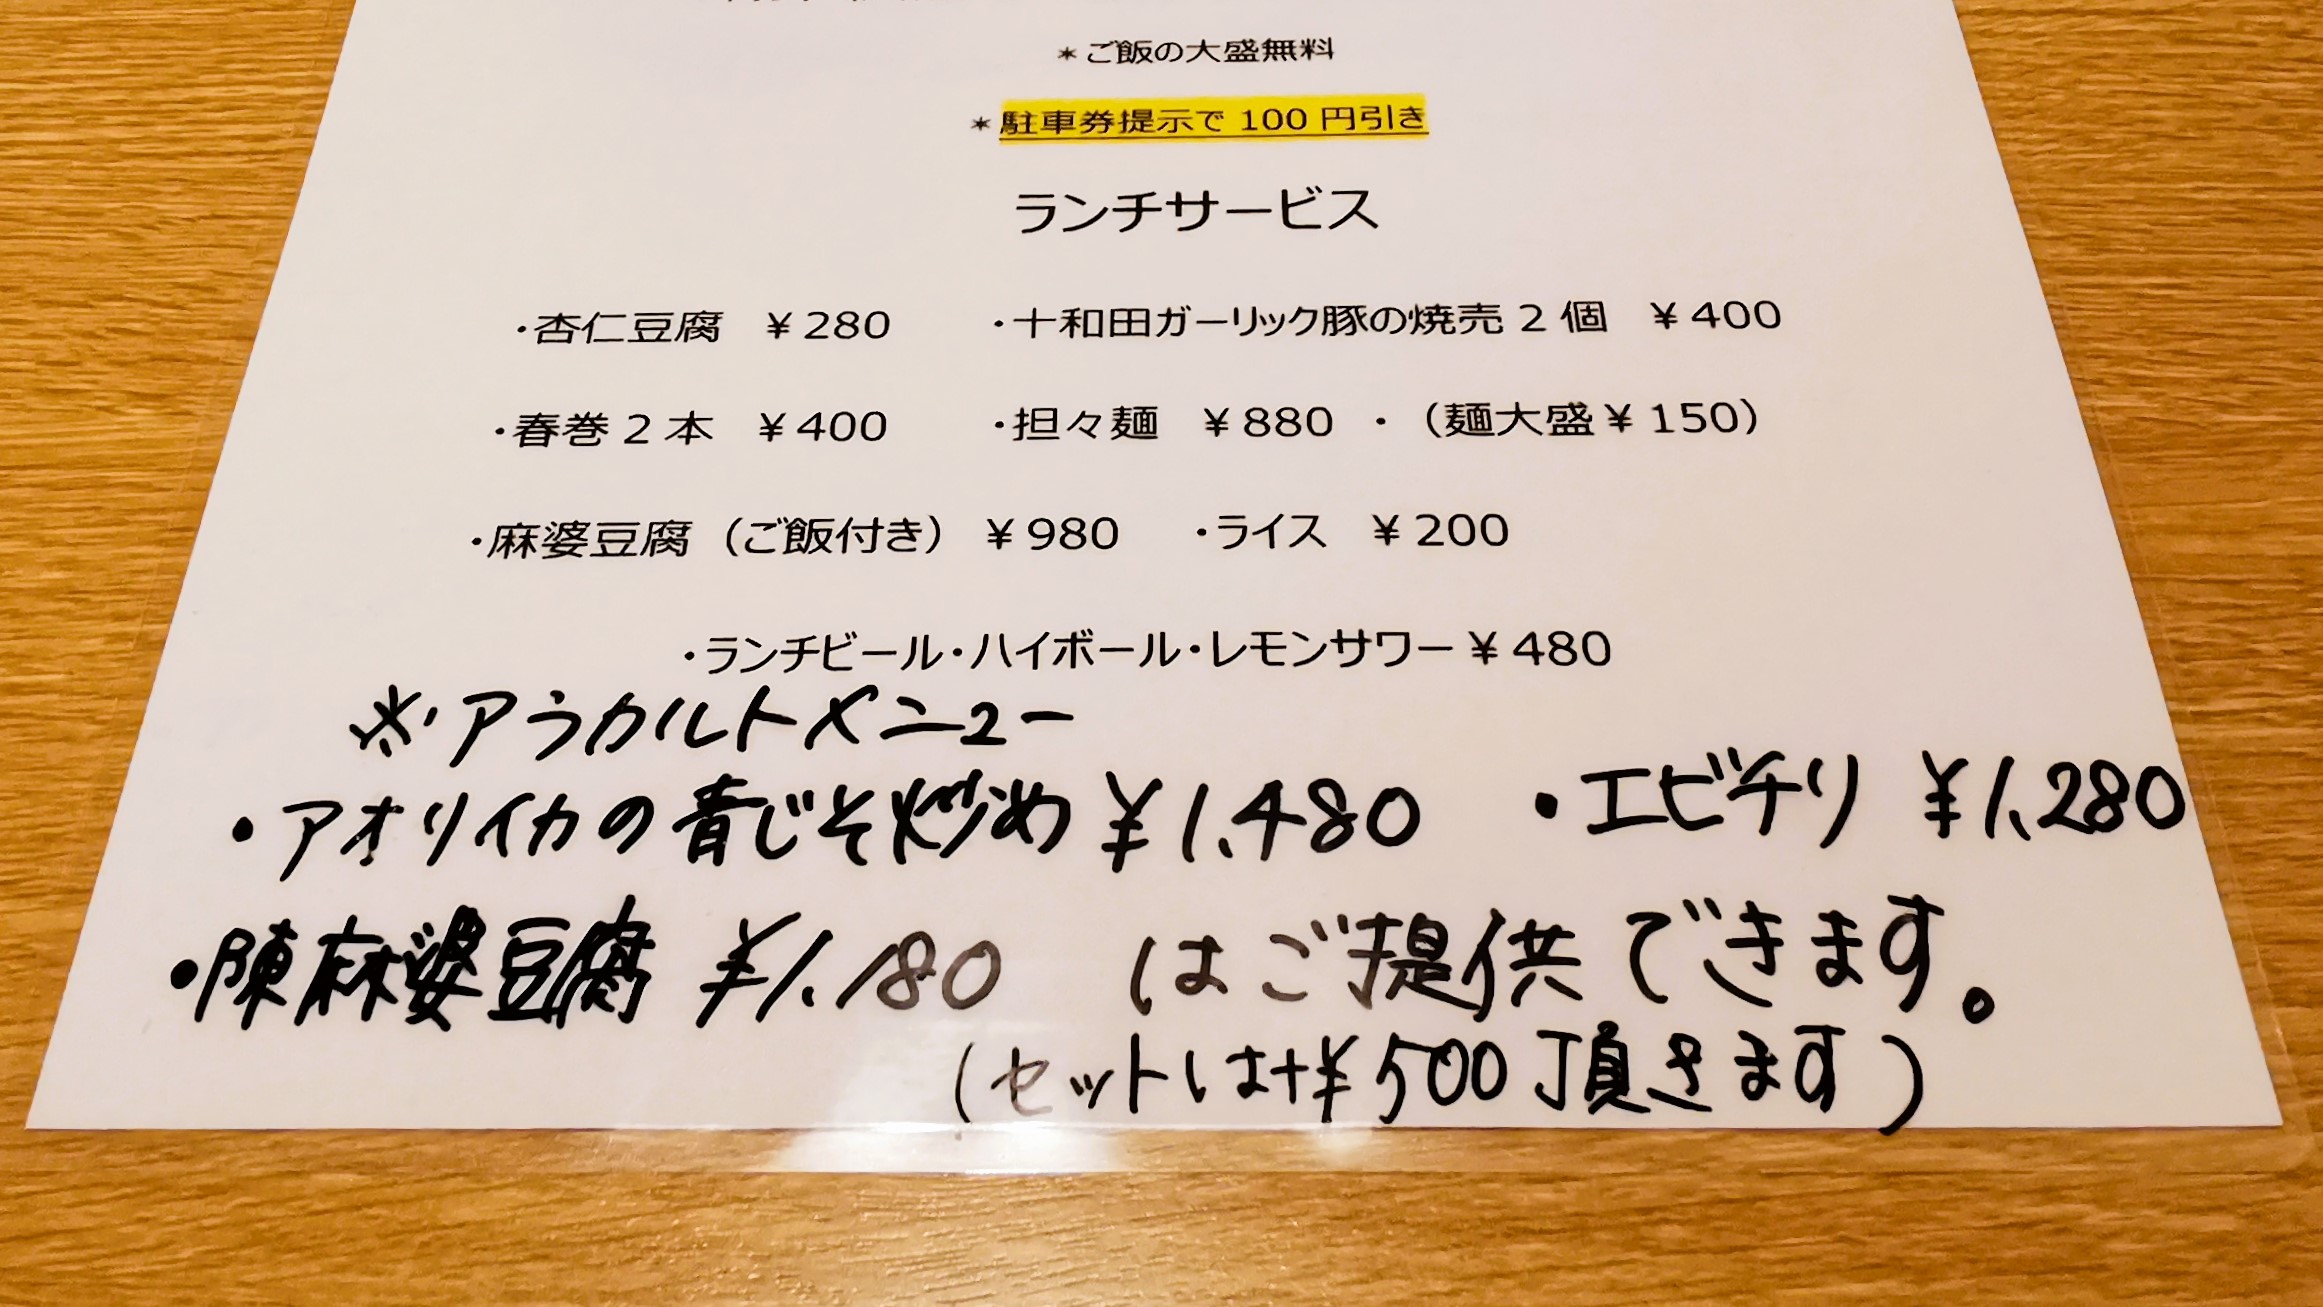 ＊ご飯の大盛無料
＊駐車券提示で 100 円引き
ランチサービス
・杏仁豆腐　￥280　・十和田ガーリック豚の焼売 2 個　￥400
・春巻 2 本　￥400　・担々麺　￥880　・（麺大盛￥150）
・麻婆豆腐（ご飯付き）￥980　・ライス　￥200
・ランチビール・ハイボール・レモンサワー￥480
※・アラカルトメニュー
・アオリイカの青じそ炒め ¥1,480　・エビチリ ¥1,280
・陳麻婆豆腐 ¥1,180　はご提供できます。
(セットは+¥500頂きます)